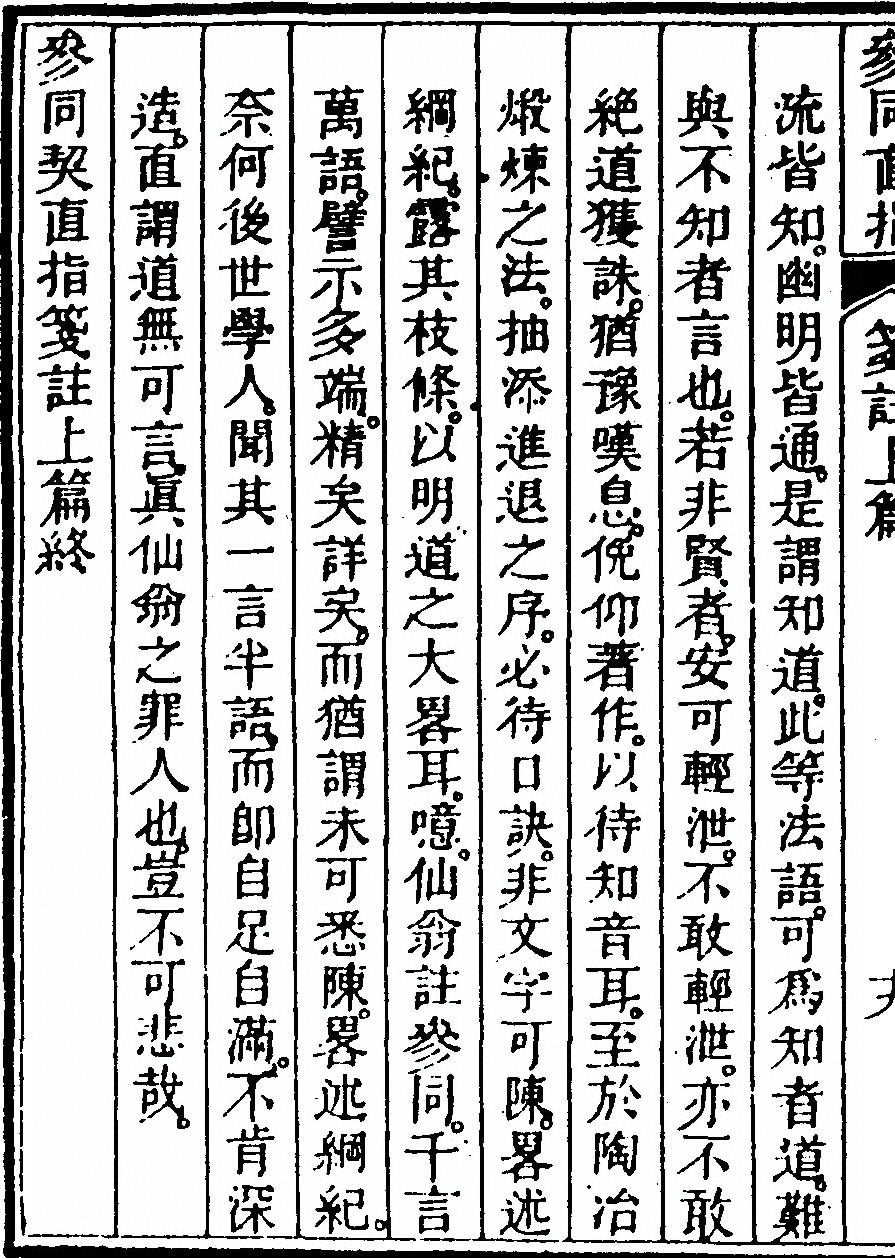 參同直指
箋註上篇
流皆知。幽明皆通。是謂知道。此等法語。可爲知者道。難
與不知者言也。若非賢者。安可輕泄。不敢輕泄。亦不敢
絶道獲誅。猶豫嘆息。俛仰著作。以待知音耳。至於陶冶
煅煉之法。抽添進退之序。必待口訣。非文字可陳。畧述
綱紀。露其枝條。以明道之大畧耳。噫。仙翁註參同。千言
萬語。譬示多端。精矣詳矣。而猶謂未可悉陳。畧述綱紀。
奈何後世學人。聞其一言半語。而卽自足自滿。不肯深
造。直謂道無可言。眞仙翁之罪人也。豈不可悲哉。
參同契直指箋註上篇終